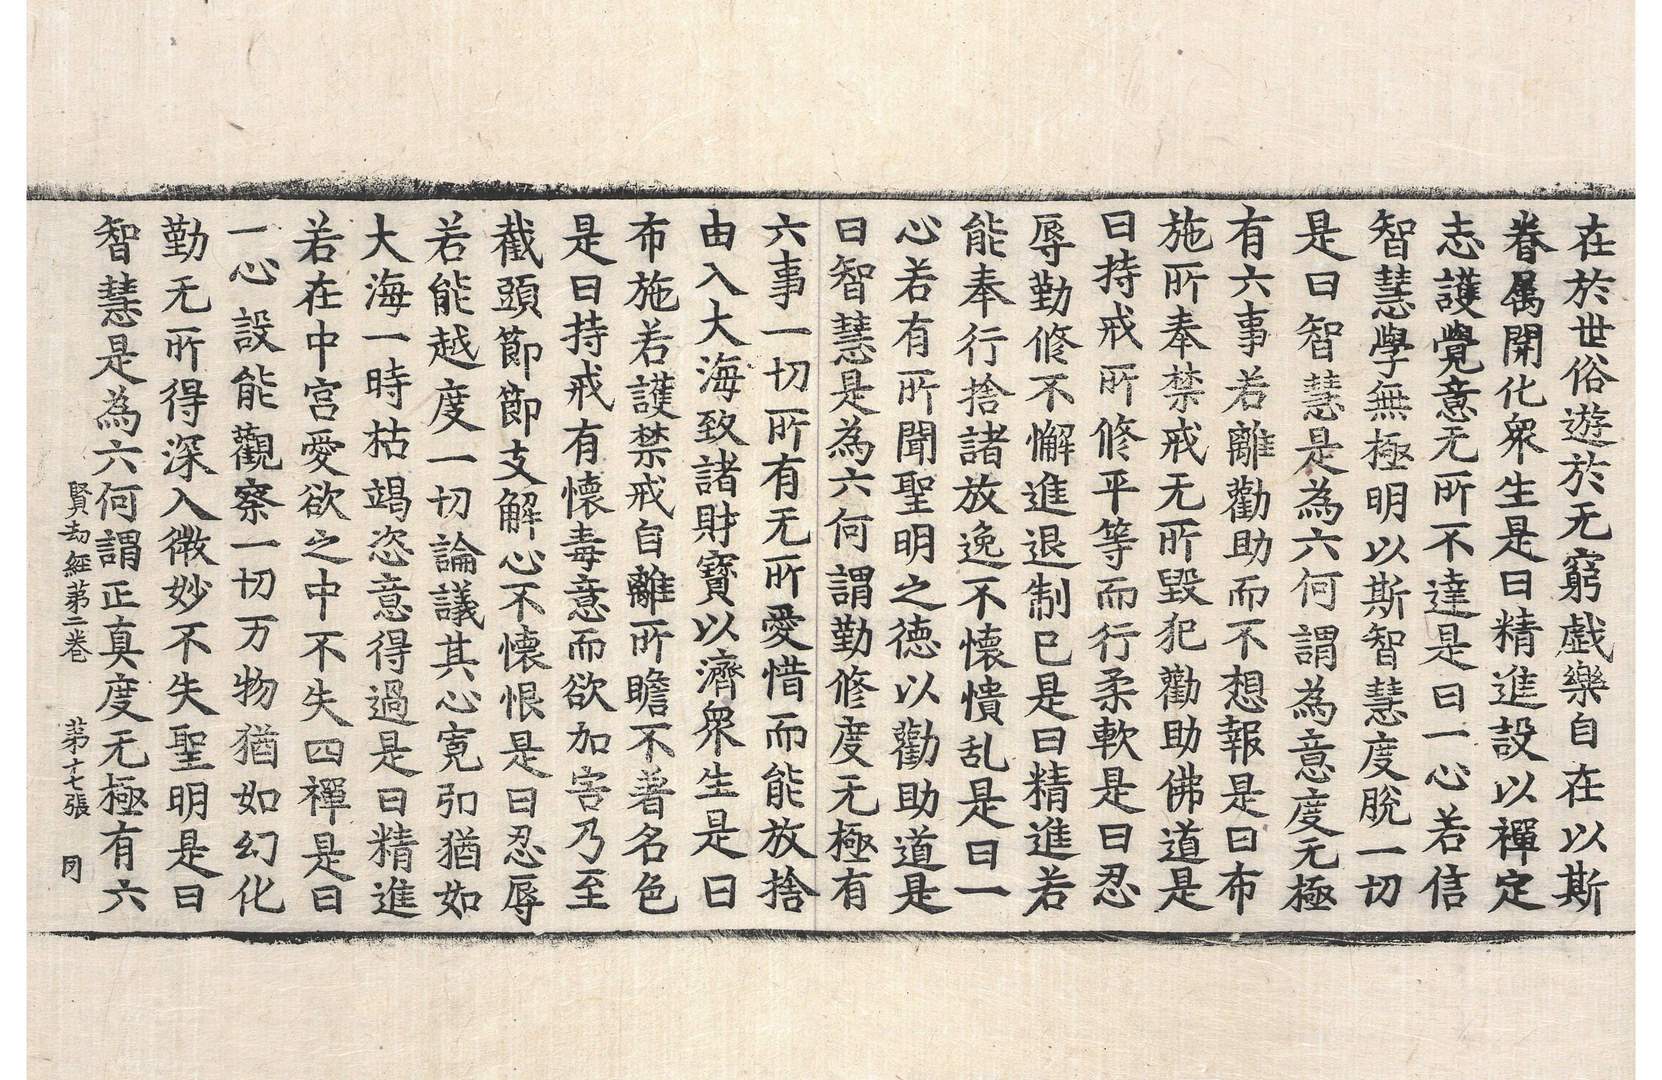 在於世俗遊於无窮戱樂自在以斯
眷属開化衆生是曰精進設以禪定
志護覺意无所不達是曰一心若信
智慧學無極明以斯智慧度脫一切
是曰智慧是為六何謂為意度无極
有六事若離勸助而不想報是曰布
施所奉禁戒无所毀犯勸助佛道是
曰持戒所修平等而行柔軟是曰忍
辱勤修不懈進退制已是曰精進若
能奉行捨諸放逸不懷憒乱是曰一
心若有所聞聖明之德以勸助道是
曰智慧是為六何謂勤修度无極有
六事一切所有无所愛惜而能放捨
由入大海致諸財寶以濟衆生是曰
布施若護禁戒自離所瞻不著名色
是曰持戒有懷毒意而欲加害乃至
截頭節節支解心不懷恨是曰忍辱
若能越度一切論議其心寬弘猶如
大海一時枯竭恣意得過是曰精進
若在中宮愛欲之中不失四禪是曰
一心設能觀察一切万物猶如幻化
勤无所得深入微妙不失聖明是曰
智慧是為六何謂正真度无極有六
賢劫經第二卷 第十七張 同